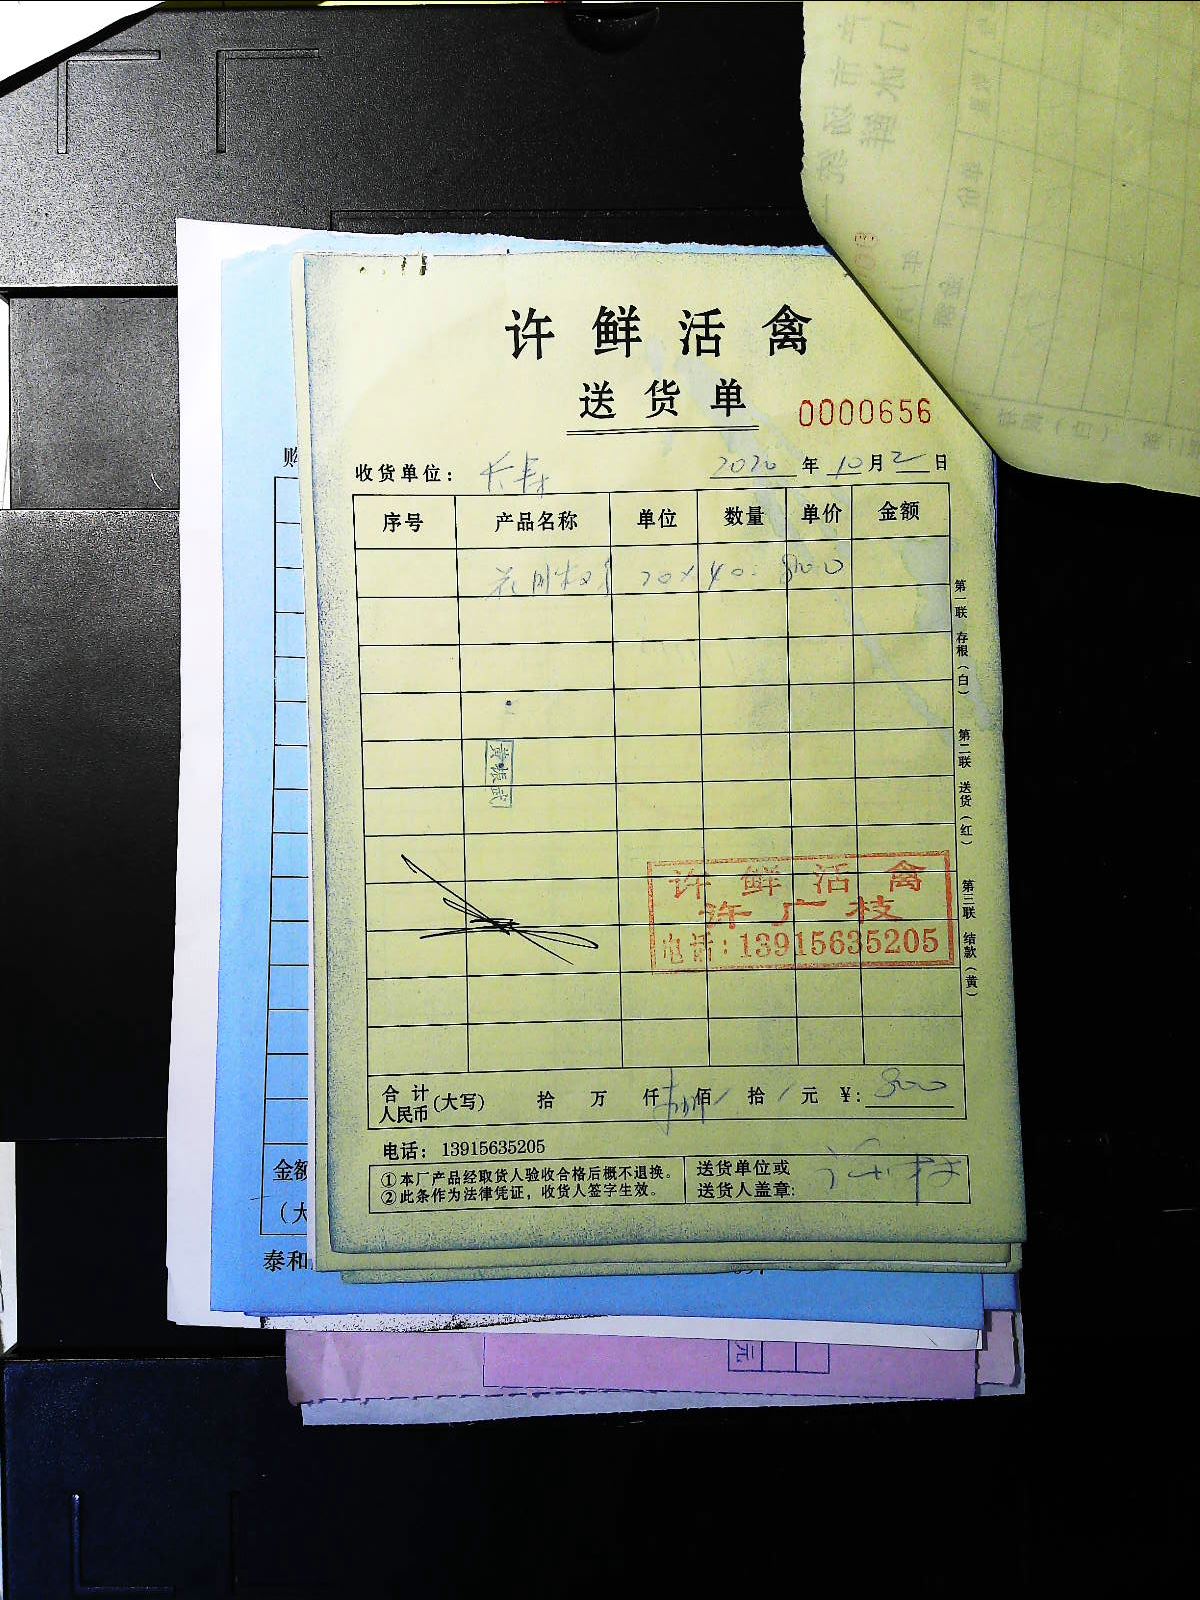 许鲜活禽
送货单
0000656
收货单位：长寿
2020年10月2日
序号 产品名称 单位 数量 单价 金额
20×40=800
第一联 存根（白）
第二联 送货（红）
第三联 结款（黄）
黄振武
许鲜活禽
许广枝
电话:13915635205
合计人民币（大写） 拾 万 仟 佰 拾 元 ¥:800
电话：13915635205
①本厂产品经取货人验收合格后概不退换。
②此条作为法律凭证，收货人签字生效。
送货单位或
送货人盖章:
购
金额
（大
泰和
元